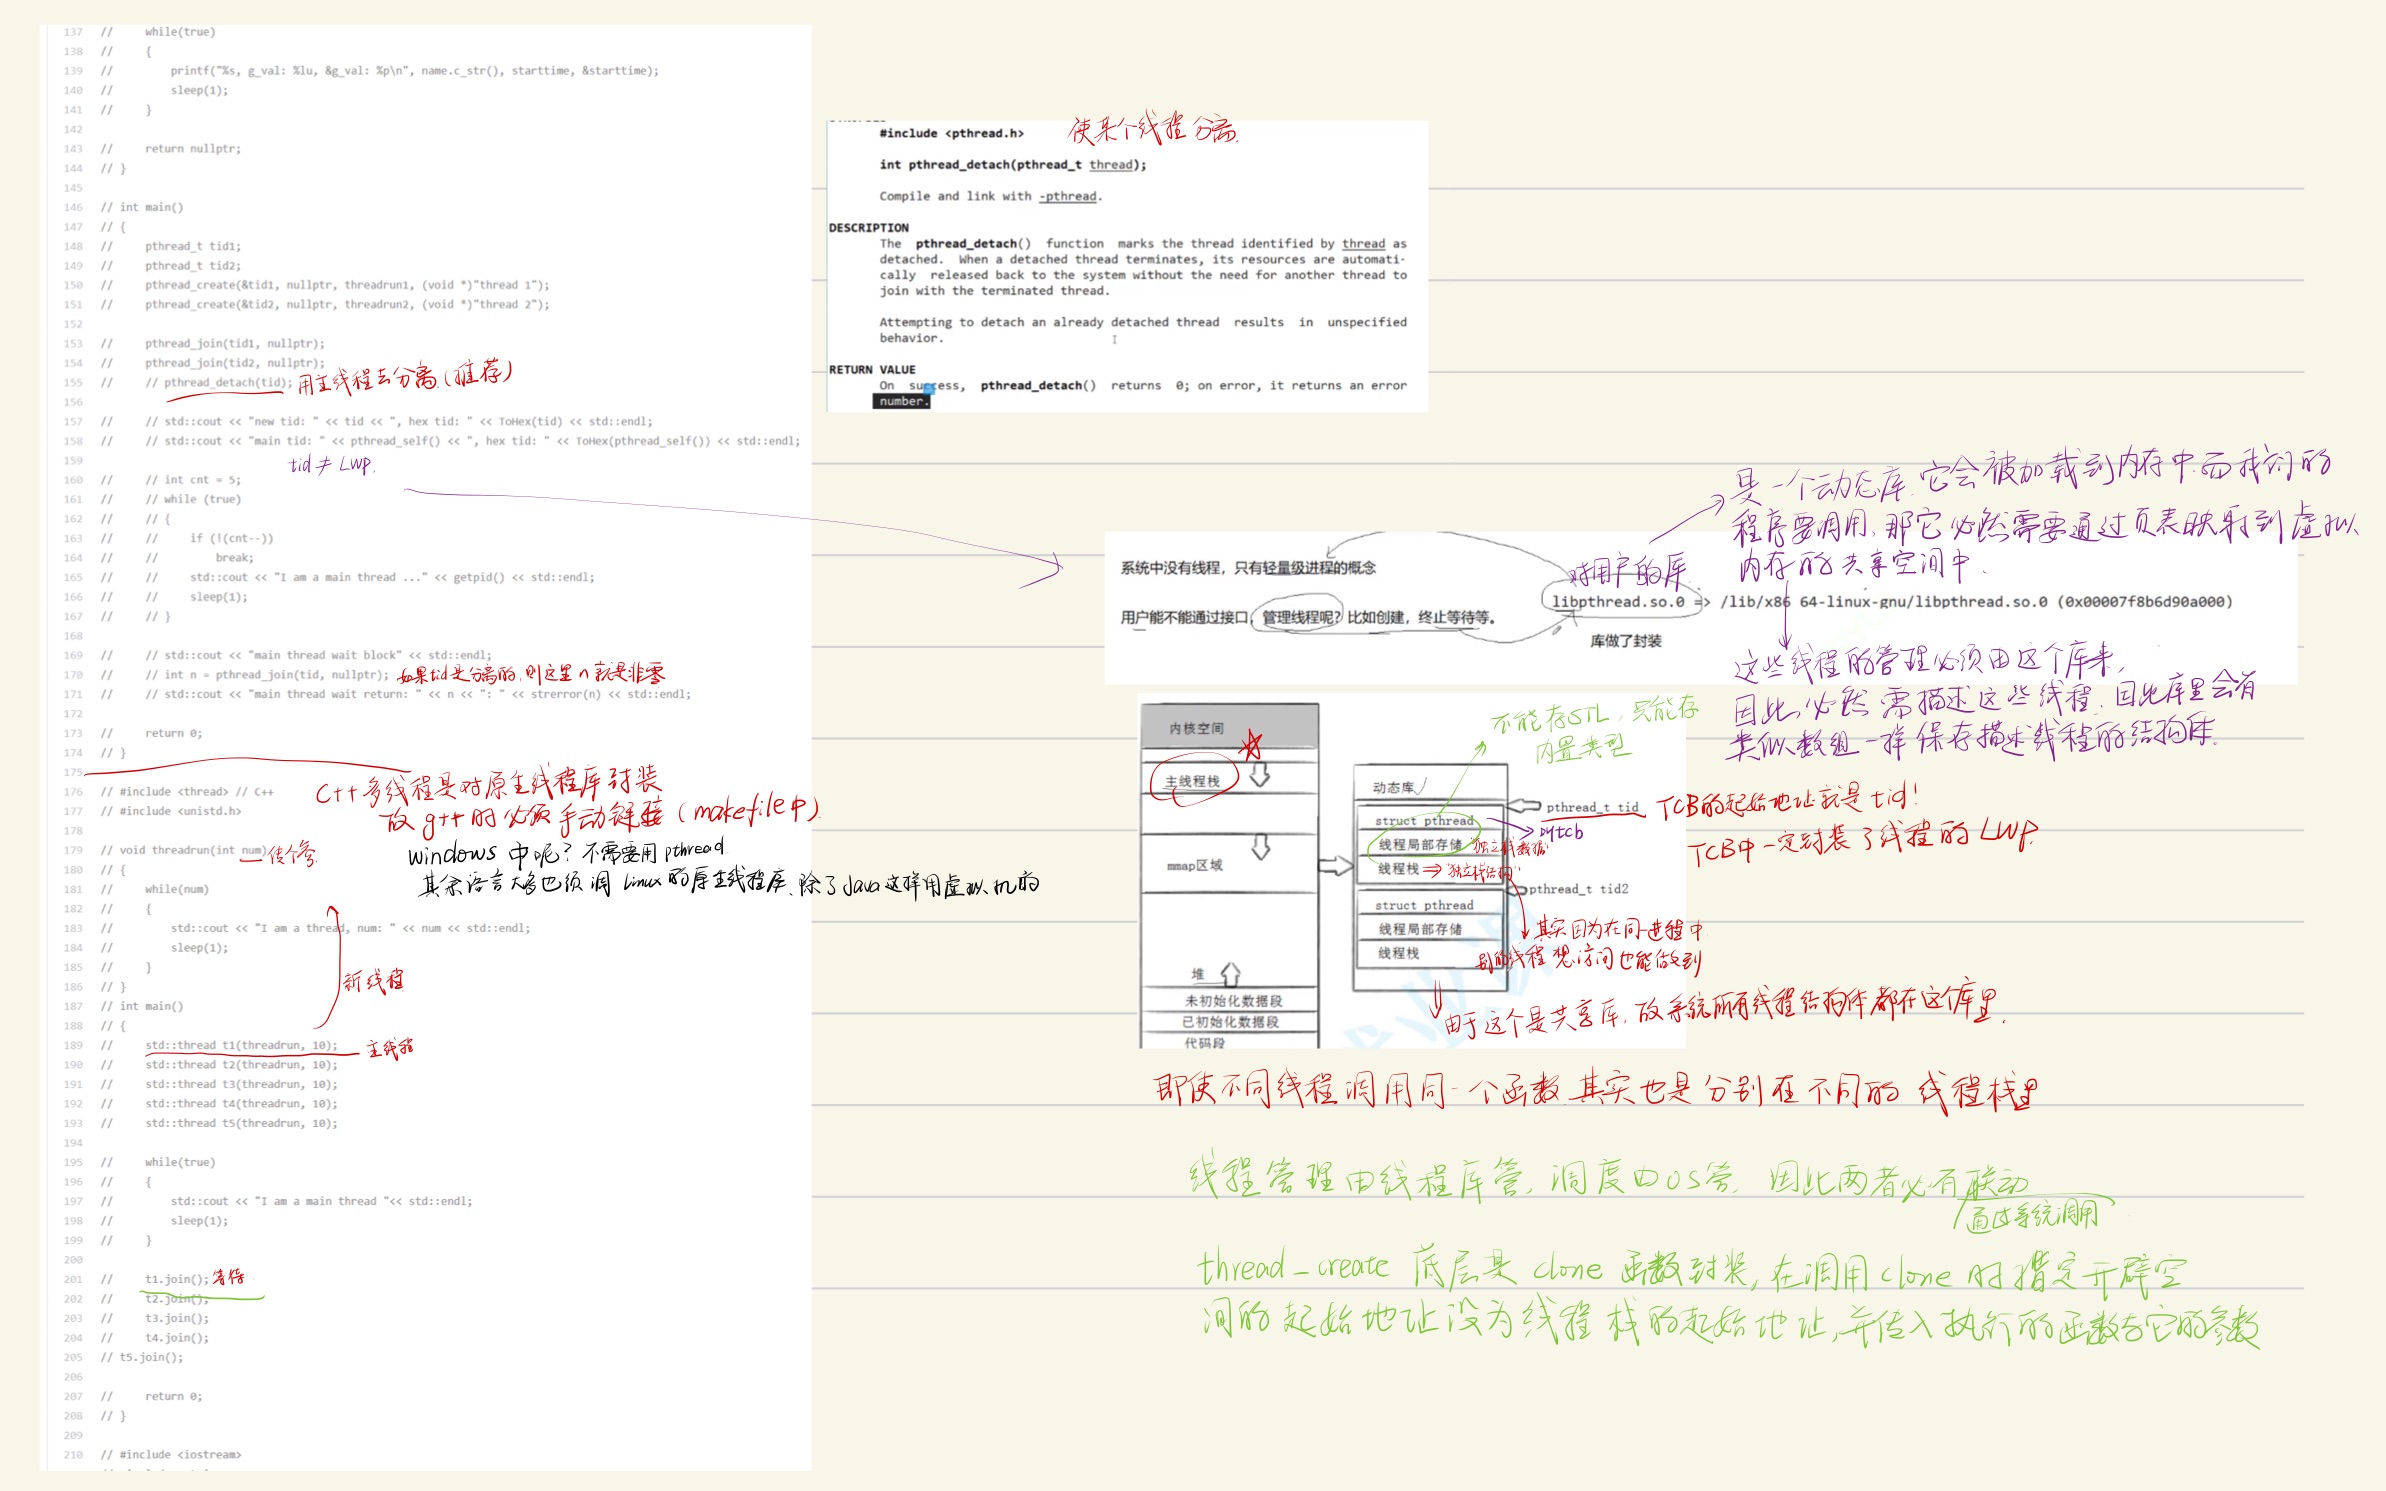 137 //     while(true)
138 //     {
139 //         printf("%s, g_val: %lu, &g_val: %p\n", name.c_str(), starttime, &starttime);
140 //         sleep(1);
141 //     }
142
143 //     return nullptr;
144 // }
145
146 // int main()
147 // {
148 //     pthread_t tid1;
149 //     pthread_t tid2;
150 //     pthread_create(&tid1, nullptr, threadrun1, (void *)"thread 1");
151 //     pthread_create(&tid2, nullptr, threadrun2, (void *)"thread 2");
152
153 //     pthread_join(tid1, nullptr);
154 //     pthread_join(tid2, nullptr);
155 //     // pthread_detach(tid); 用主线程去分离(推荐)
156
157 //     // std::cout << "new tid: " << tid << ", hex tid: " << ToHex(tid) << std::endl;
158 //     // std::cout << "main tid: " << pthread_self() << ", hex tid: " << ToHex(pthread_self()) << std::endl;
159
tid ≠ LWP.
160 //     // int cnt = 5;
161 //     // while (true)
162 //     // {
163 //     //     if (!(cnt--))
164 //     //         break;
165 //     //     std::cout << "I am a main thread ..." << getpid() << std::endl;
166 //     //     sleep(1);
167 //     // }
168
169 //     // std::cout << "main thread wait block" << std::endl;
170 //     // int n = pthread_join(tid, nullptr); 如果tid是分离的,则这里n就是非零
171 //     // std::cout << "main thread wait return: " << n << ": " << strerror(n) << std::endl;
172
173 //     return 0;
174 // }
175
176 // #include <thread> // C++
177 // #include <unistd.h>
178
C++多线程是对原生线程库封装
故g++时必须手动链接(makefile中)
windows中呢？不需要用pthread
其余语言大多也须调Linux的原生线程库,除了Java这样用虚拟机的
179 // void threadrun(int num) 传个参
180 // {
181 //     while(num)
182 //     {
183 //         std::cout << "I am a thread, num: " << num << std::endl;
184 //         sleep(1);
185 //     }
186 // }
新线程
187 // int main()
188 // {
189 //     std::thread t1(threadrun, 10); 主线程
190 //     std::thread t2(threadrun, 10);
191 //     std::thread t3(threadrun, 10);
192 //     std::thread t4(threadrun, 10);
193 //     std::thread t5(threadrun, 10);
194
195 //     while(true)
196 //     {
197 //         std::cout << "I am a main thread "<< std::endl;
198 //         sleep(1);
199 //     }
200
201 //     t1.join(); 等待
202 //     t2.join();
203 //     t3.join();
204 //     t4.join();
205 // t5.join();
206
207 //     return 0;
208 // }
209
210 // #include <iostream>
#include <pthread.h>
使某个线程分离.
int pthread_detach(pthread_t thread);
Compile and link with -pthread.
DESCRIPTION
The pthread_detach() function marks the thread identified by thread as
detached. When a detached thread terminates, its resources are automati-
cally released back to the system without the need for another thread to
join with the terminated thread.
Attempting to detach an already detached thread results in unspecified
behavior.
RETURN VALUE
On success, pthread_detach() returns 0; on error, it returns an error
number.
是一个动态库.它会被加载到内存中.而我们的
程序要调用,那它必然需要通过页表映射到虚拟
内存的共享空间中.
系统中没有线程，只有轻量级进程的概念
对用户的库
libpthread.so.0 => /lib/x86 64-linux-gnu/libpthread.so.0 (0x00007f8b6d90a000)
用户能不能通过接口，管理线程呢？比如创建，终止等待等。
库做了封装
这些线程的管理必须由这个库来,
因此,必然需描述这些线程.因此库里会有
类似数组一样保存描述线程的结构体.
不能存STL,只能存
内置类型
内核空间
主线程栈
mmap区域
堆
未初始化数据段
已初始化数据段
代码段
动态库
struct pthread
叫tcb
线程局部存储
"独立栈数据"
线程栈
"独立栈结构"
struct pthread
线程局部存储
线程栈
pthread_t tid
TCB的起始地址就是tid!
TCB中一定封装了线程的LWP.
pthread_t tid2
其实因为在同一进程中
别的线程想访问也能做到
由于这个是共享库,故系统所有线程结构体都在这个库里.
即使不同线程调用同一个函数.其实也是分别在不同的线程栈里
线程管理由线程库管,调度由OS管.因此两者必有联动
通过系统调用
thread_create 底层是clone函数封装,在调用clone时指定开辟空
间的起始地址设为线程栈的起始地址,并传入执行的函数与它的参数